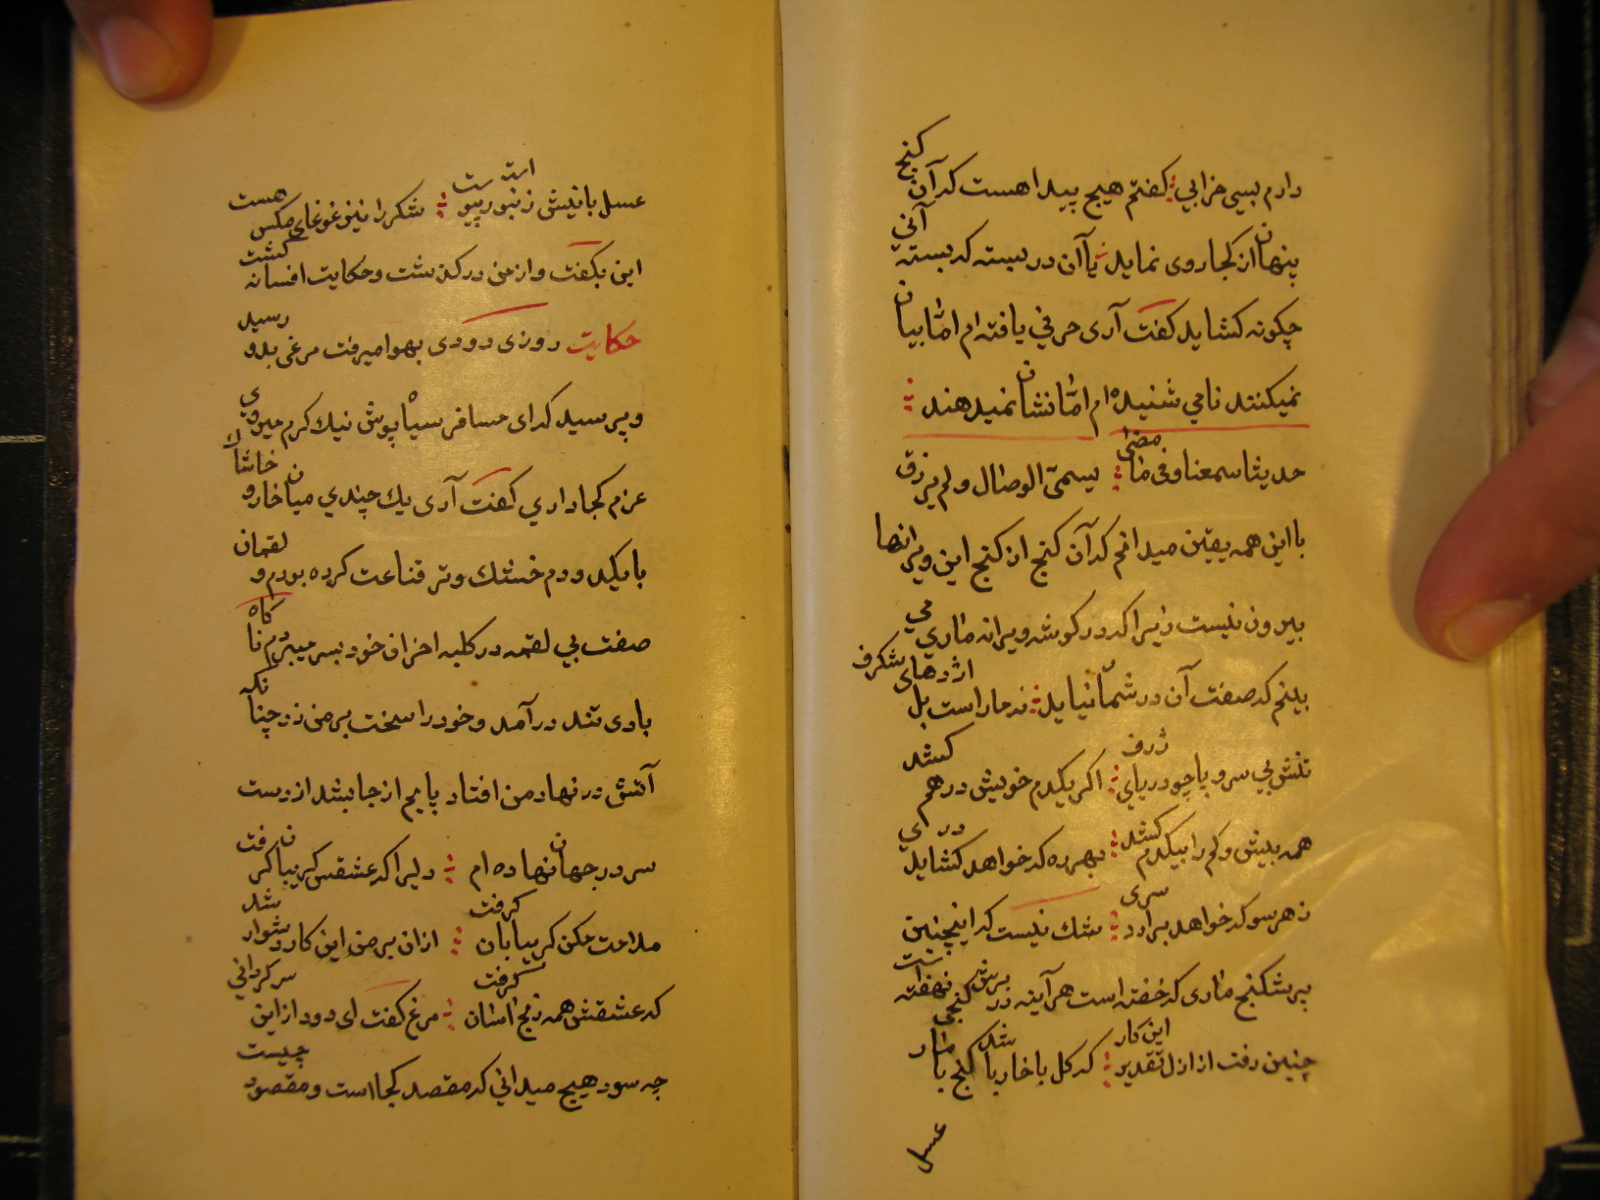 دارم بسی خرابی ؛ کفتم هیچ پیدا هست که آن کنج
پنهان از کجا روی نماید یا آن در بسته که بسته آنی
چکونه کشاید کفت آری حرفی یافته ام امّا بیان
نمیکنند نامی شنیده ام امّا نشان نمیدهند
حدیثا سمعنا و فی ما مضی ؛ یسمّی الوصال و لم یرزق
با این همه یقین میدانم که آن کنج از کنج این ویرانها
بیرون نیست زیرا که در کوشه ویرانه ماری می
بینم که صفت آن در شمّا نیاید ؛ نه مار است بل اژدهای شکرف
تنش بی سر و پا چو دریای ژرف ؛ اکر یکدم خویش در هم کشد
همه بیش و کم را بیکدم کشد ؛ بهر ره که خواهد کشاید دری
ز هر سو که خواهد برارد سری ؛ شک نیست که اینچنین
بر شکنج ماری که خفته است هر آینه در برش کنجی نهفته است
چنین رفت از ازل تقدیر این کار ؛ که کل با خار باشد کنج با مار
عسل
عسل با نیش زنبور پیوست است ؛ شکر را نیز غوغای مکس هست
این بکفت و از من در کذشت و حکایت افسانه کشت
حکایت روزی دودی بهوا میرفت مرغی بدو رسید
و پرسید که ای مسافر سیاه پوش نیک کرم میروی
عزم کجا داری کفت آری یک چندی میان خار و خاشاک
با یکدو دم خشک و تر قناعت کرده بودم و لقمان
صفت بی لقمه در کلبه احزان خود بسر میبردم ناکاه
بادی تند در آمد و خود را سخت بر من زد چنانکه
آتش در نهاد من افتاد پایم از جا بشد از دست
سر در جهان نهاده ام ؛ دلیرا که عشقش کریبان کرفت
ملامت مکن کر بیابان کرفت ؛ ازان بر من این کار دشوار شد
که عشقش همه زمج اسان کرفت ؛ مرغ کفت ای دود از این سرکردانی
چه سود هیچ میدانی که مقصد کجا است و مقصود چیست